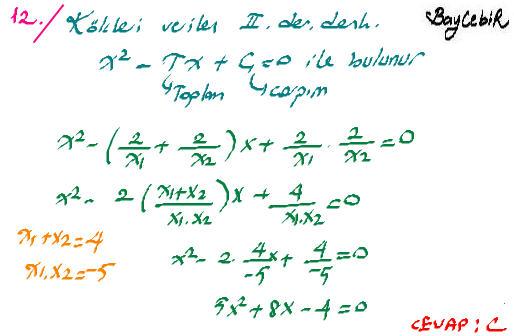 12./ Kökleri verilen II. der. denk. BayCebiR
x² - Tx + Ç = 0 ile bulunur
↳Toplam ↳çarpım
x² - (2/x₁ + 2/x₂)x + 2/x₁ · 2/x₂ = 0
x² - 2((x₁+x₂)/(x₁.x₂))x + 4/(x₁.x₂) = 0
x₁+x₂=4
x₁.x₂=-5
x² - 2 · 4/-5 x + 4/-5 = 0
5x² + 8x - 4 = 0
CEVAP : C